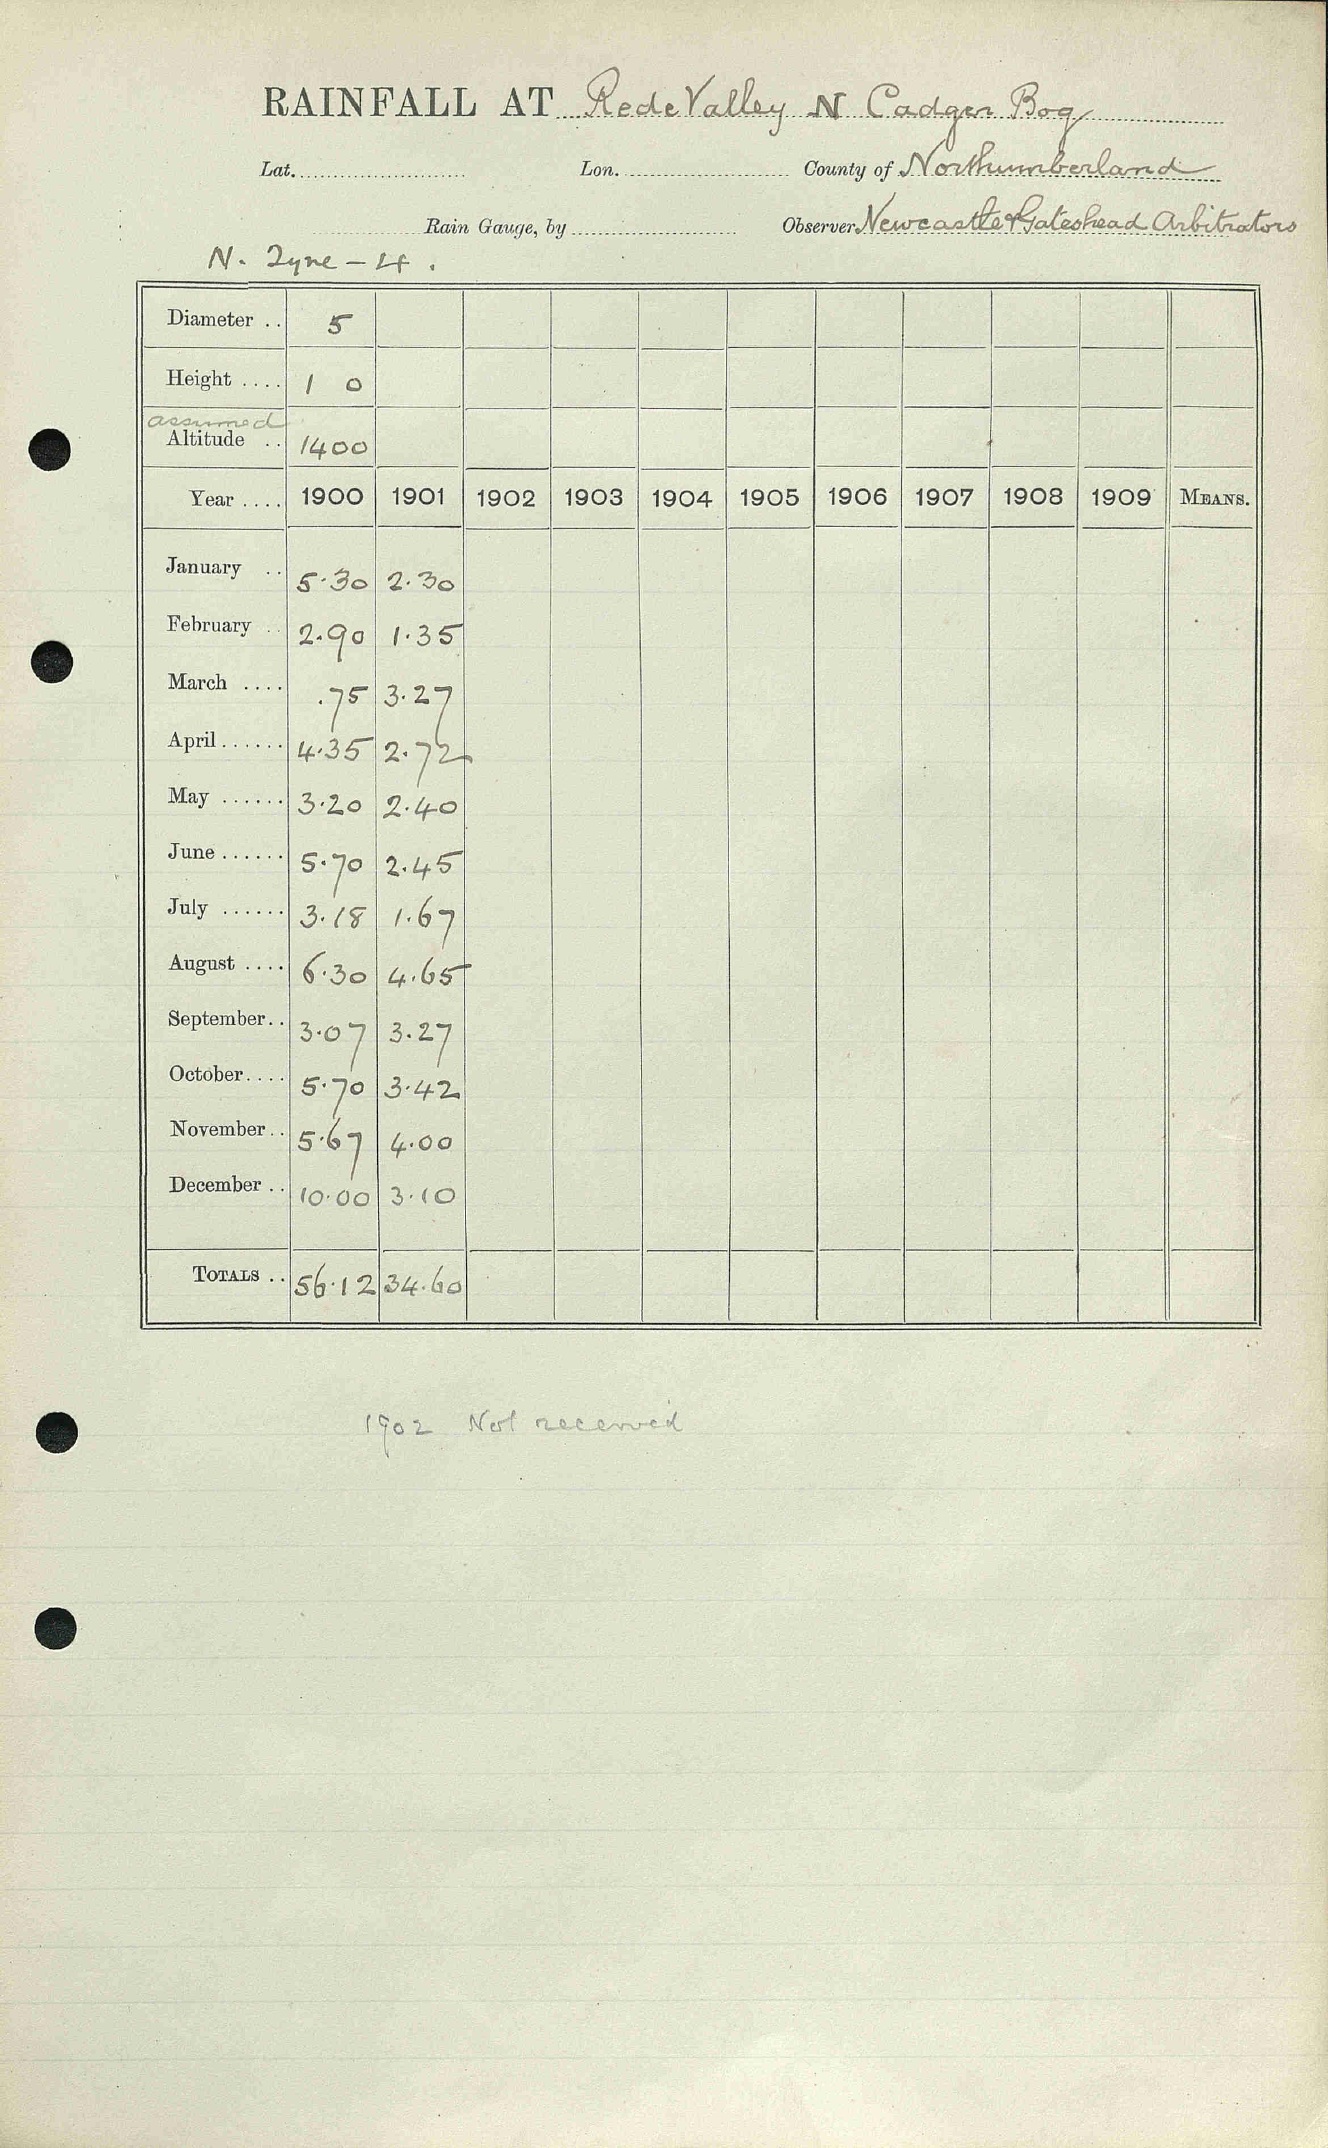 RAINFALL AT Rede Valley N Cadger Bog
Lat. Lon. County of Northumberland
Rain Gauge, by Observer Newcastle & Gateshead Arbitrators
N. Tyne - 4.
Diameter .. 5
Height .... 1 0
assumed
Altitude .. 1400
Year .... 1900 1901 1902 1903 1904 1905 1906 1907 1908 1909 MEANS.
January .. 5.30 2.30
February .. 2.90 1.35
March .... .75 3.27
April ...... 4.35 2.72
May ...... 3.20 2.40
June ...... 5.70 2.45
July ...... 3.18 1.67
August .... 6.30 4.65
September .. 3.07 3.27
October .... 5.70 3.42
November .. 5.67 4.00
December .. 10.00 3.10
TOTALS .. 56.12 34.60
1902 Not received